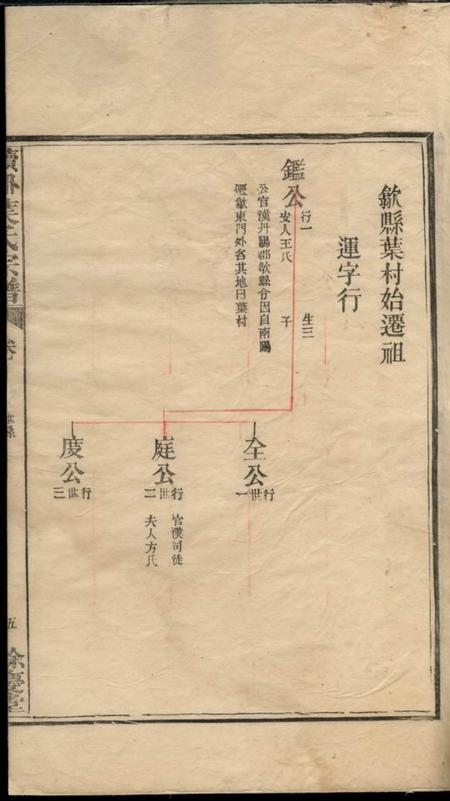 歙縣葉村始遷祖
運字行
鑑公
行一
生三
安人王氏
子
公官漢丹陽郡歙縣令因自南陽
遷歙東門外名其地曰葉村
全公
行世一
庭公
行世二
官漢司徒
夫人方氏
度公
行世三
葉氏宗譜
卷
世系
五
餘慶堂